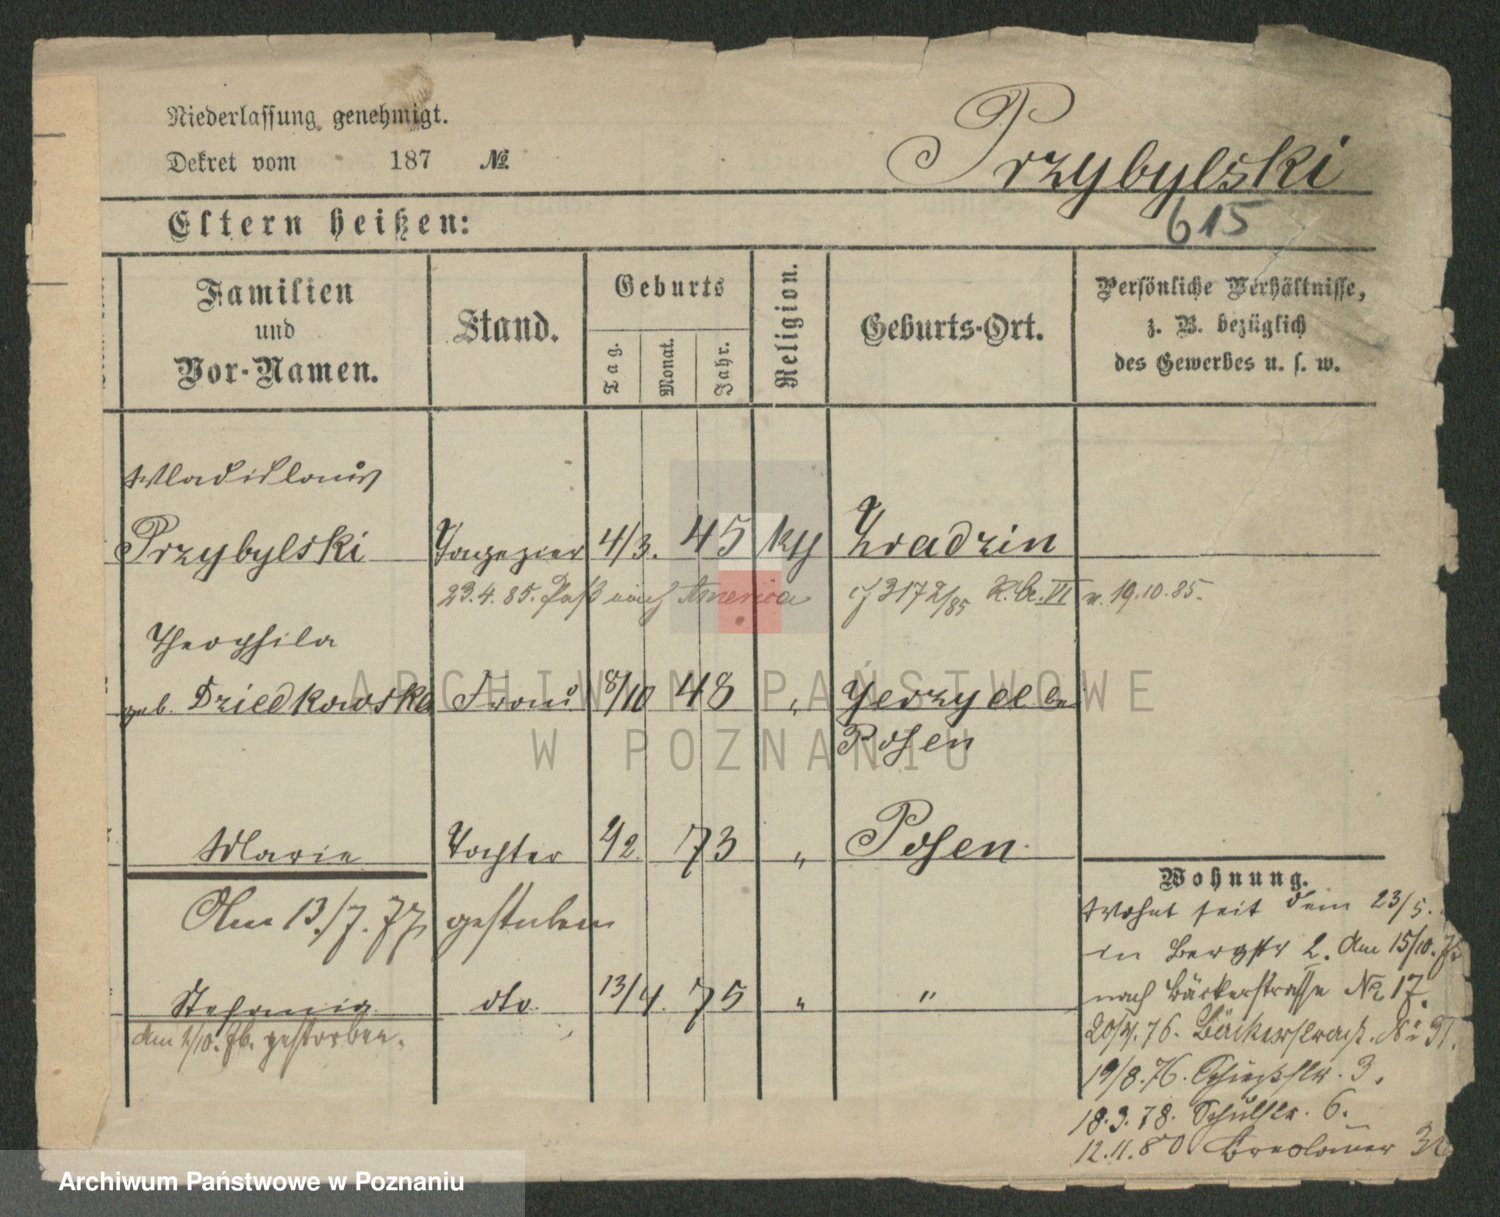 Niederlassung genehmigt.
Dekret vom 187 №
Przybylski
615
Eltern heißen:
Familien und Vor-Namen.
Stand.
Geburts
Tag.
Monat.
Jahr.
Religion.
Geburts-Ort.
Persönliche Verhältnisse,
z. B. bezüglich
des Gewerbes u. s. w.
Wladislaus
Przybylski Tapezier 4/3. 45 kth Zradzin
23.4.85. Paß nach America 3172/85 v. 19.10.85.
Theophila
geb. Dziedkowska Frau 8/10 48 " Jerzyce bei
Posen
Marie Tochter 4/2 73 " Posen
Am 13./7.77 gestorben
Stefania dto 13/4. 75 " "
Am 2/10. 76. gestorben.
Wohnung.
Wohnt seit dem 23/5.
in Bergstr 2. Am 15/10.
nach Bäckerstrasse № 17.
20/4.76. Bäckerstraße № 31.
19/8.76. Schießstr. 3.
18.3.78. Schulstr. 6.
12.11.80 Breslauer
ARCHIWUM PAŃSTWOWE
W POZNANIU
Archiwum Państwowe w Poznaniu